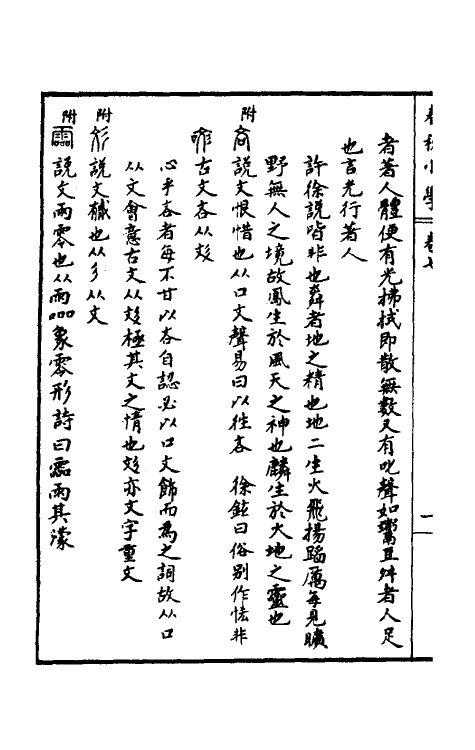 者著人體便有光拂拭即散無數又有吒聲如鬻豆舛者人足
也言光行著人
許徐說皆非也粦者地之精也地二生火飛揚蹈厲每見曠
野無人之境故鳳生於風天之神也麟生於火地之靈也
附 吝 說文恨惜也从口文聲易曰以往吝 徐鉉曰俗別作恡非
古文吝从彣
心乎吝者每不甘以吝自認必以口文飾而為之詞故从口
从文會意古文从彣極其文之情也彣亦文字重文
附 彣 說文䩉也从彡从文
附 霝 說文雨零也从雨𠱠象零形詩曰霝雨其濛
小學
卷七